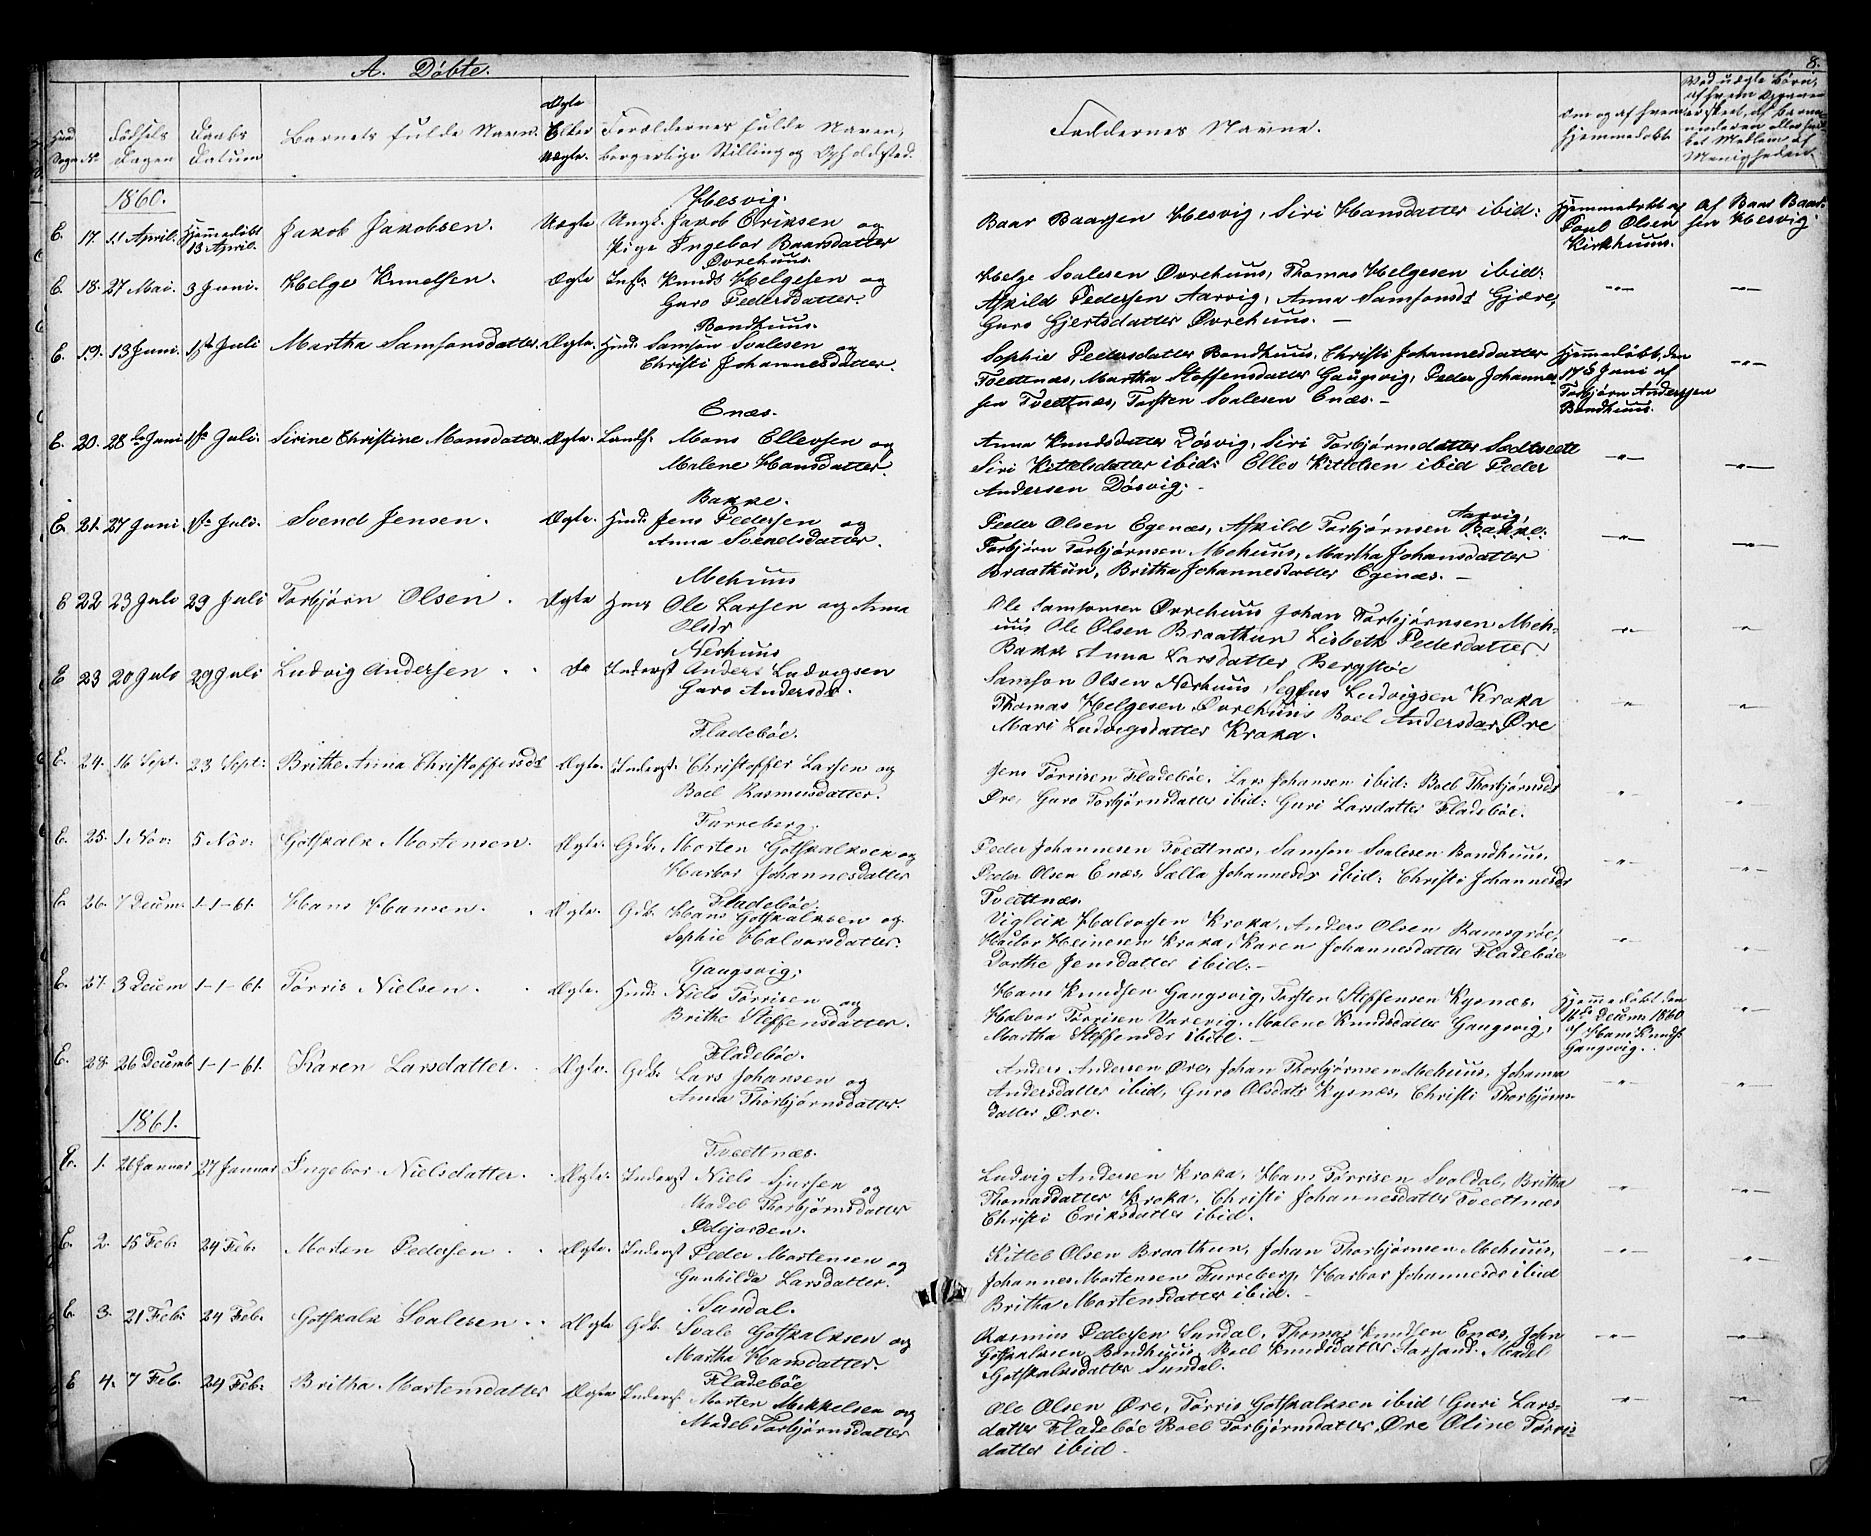 A. Døbte.
8.
Fødsels Dagen
Daabs Datum
Barnets fulde Navn.
Ægte Eller Uægte.
Forældrenes fulde Navne, borgerlige Stilling og Opholdsted.
Faddernes Navne.
Om og af hvem hjemmedøbt
1860.
Hesvig.
E. 17. 11 April. Hjemmedøbt 13 April. Jakob Jakobsen. Uægte Ungk. Jakob Eriksen og
Pige Ingebor Baarsdatter
Baar Baarsen Hesvig, Siri Hansdatter ibid:
Hjemmedøbt af
Poul Olsen
Kirkhuus.
af Baar Baar-
sen Hesvig
Øvrehuus.
E. 18. 27 Mai. 3 Juni. Helge Knudsen. Ægte Inst. Knud Helgesen og
Guro Pedersdatter.
Helge Svalesen Øvrehuus, Thomas Helgesen ibid:
Askild Pedersen Aarvig, Anna Samsonsdr Gjære,
Guro Gjertsdatter Øvrehuus. —
Bondhuus.
E. 19. 13 Juni. 1ste Juli Martha Samsonsdatter. Ægte. Huusm. Samson Svalesen og
Christi Johannesdatter.
Sophie Pedersdatter Bondhuus, Christi Johannesdatter
Tveitnæs, Martha Steffensdatter Gaugsvig, Peder Johannes-
sen Tveitnæs, Torsten Svalesen Enæs. —
Hjemmedøbt, den
17 Juni af
Torbjørn Anderssen
Bondhuus.
Enæs.
E. 20. 28de Juni 1ste Juli. Sirine Christine Monsdatter. Ægte. Mons Ellevsen og
Malene Hansdatter.
Anna Knudsdatter Døsvig, Siri Torbjørnsdatter
Siri Kittelsdatter ibid: Ellev Kittelsen ibid Peder
Andersen Døsvig. -
Bakke.
E. 21. 27 Juni 1ste Juli. Svend Jensen. Ægte. Huusm. Jens Pedersen og
Anna Svendsdatter.
Aarvig
Peder Olsen Egenæs, Askild Torbjørnsen Bakke.
Torbjørn Torbjørnsen Mehuus, Martha Johansdatter
Braathun, Britha Johannesdatter Egenæs. —
Mehuus
E 22 23 Juli 29 Juli Torbjørn Olsen. Ægte Ole Larsen og Anna
Olsdr
Ole Samsonsen Øvrehuus Johan Torbjørnsen Meh-
uus Ole Olsen Braathun Lisbeth Pedersdatter
Bakk Anna Larsdatter Bergstøe
Nerhuus
E 23 20 Juli 29 Juli Ludvig Andersen Do Inderst Anders Ludvigsen
Guro Andersdr.
Samson Olsen Nerhuus Ludvigsen Kroka
Thomas Helgesen Øvrehuus Boel Andersdtr Øre
Mari Ludvigsdatter Kroka.
Fladebøe.
E. 24. 16 Sept. 23 Sept: Brithe Anna Christoffersdr Ægte. Inderst. Christoffer Larsen og
Boel Rasmusdatter.
Jens Tørrisen Fladebøe. Lars Johansen ibid: Boel Thorbjørnsdr
Øre, Guro Torbjørnsdatter ibid: Guri Larsdatter Fladebøe.
Furreberg.
E. 25. 1 Nov: 5 Nov: Gotskalk Mortensen. Ægte. Gdb. Morten Gotskalksen og
Harbor Johannesdatter
Peder Johannesen Tveitnæs, Samson Svalesen Bondhuus,
Peder Olsen Enæs, Sælla Johannesdr ibid: Christi Johannesdr
Tveitnæs.
Fladebøe.
E. 26. 7 Decem. 1-1-61. Hans Hansen. Ægte. Gdb. Hans Gotskalksen og
Sophie Halvorsdatter.
Vigleik Halvorsen Kroka, Anders Olsen Ramsgrøe,
Heinesen Kroka, Karen Johannesdatter Fladebøe
Dorthe Jensdatter ibid: -
Gaugsvig.
E. 27. 3 Decem 1-1-61. Tørris Nielsen. Ægte. Huusm. Niels Tørrisen og
Brithe Steffensdatter.
Hans Knudsen Gaugsvig, Torsten Steffensen Kysnæs.
Halvor Tørrisen Varevig. Malene Knudsdatter Gaugsvig,
Martha Steffensdr ibid. -
Hjemmedøbt den
16de Decem 1860
af Hans Knuds.
Gaugsvig.
Fladebøe.
E. 28. 26 Decemb 1-1-61. Karen Larsdatter. Ægte. Gdb. Lars Johansen og
Anna Thorbjørnsdatter.
Anders Andersen Øre, Johan Thorbjørnsen Mehuus, Johanna
Andersdatter ibid, Guro Olsdatr Kysnæs, Christi Thorbjørns-
datter Øre.
1861.
Tveitnæs.
E. 1. 26 Januar 27 Januar Ingebor Nielsdatter. Ægte. Inderst Niels og
Madel Thorbjørnsdatter
Ludvig Andersen Kroka, Hans Tørrisen Svoldal, Britha
Thomasdatter Kroka, Christi Johannesdatter Tveitnæs
Christi Eriksdatter ibid.
Ødejorden.
E. 2. 15 Feb: 24 Feb: Morten Pedersen. Ægte. Inderst Peder Mortensen og
Gunhilda Larsdatter.
Kittel Olsen Braathun, Johan Thorbjørnsen Mehuus,
Johannes Mortensen Furreberg, Harbor Johannesdr ibid
Britha Mortensdatter ibid. -
Sundal.
E. 3. 21 Feb: 24 Feb: Gotskalk Svalesen. Ægte Gdb. Svale Gotskalksen og
Martha Hansdatter.
Rasmus Pedersen Sundal, Thomas Knudsen Enæs, John
Gotskalksen Bondhuus, Boel Knudsdatter Aarsand. Madel
Gotskalksdatter Sundal.
Fladebøe
E 4. 7 Feb. 24 Feb: Britha Mortensdatter Ægte Inderst Morten Mikkelsen og
Madel Torbjørnsdatter
Ole Olsen Øre, Tørris Gotskalksen ibid Guri Lars-
datter Fladebøe Boel Torbjørnsdatter, Øre Oline Tørris-
datter ibid.